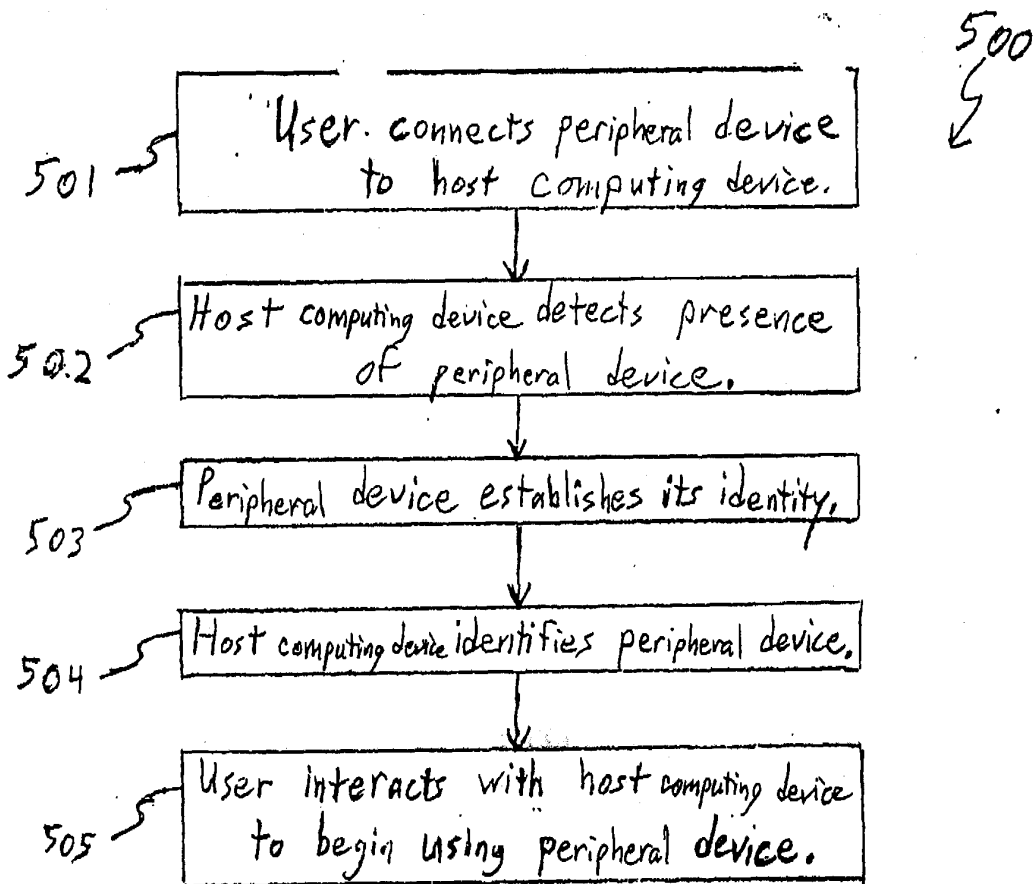 500
501
User connects peripheral device
to host computing device.
502
Host computing device detects presence
of peripheral device.
503
Peripheral device establishes its identity.
504
Host computing device identifies peripheral device.
505
User interacts with host computing device
to begin using peripheral device.